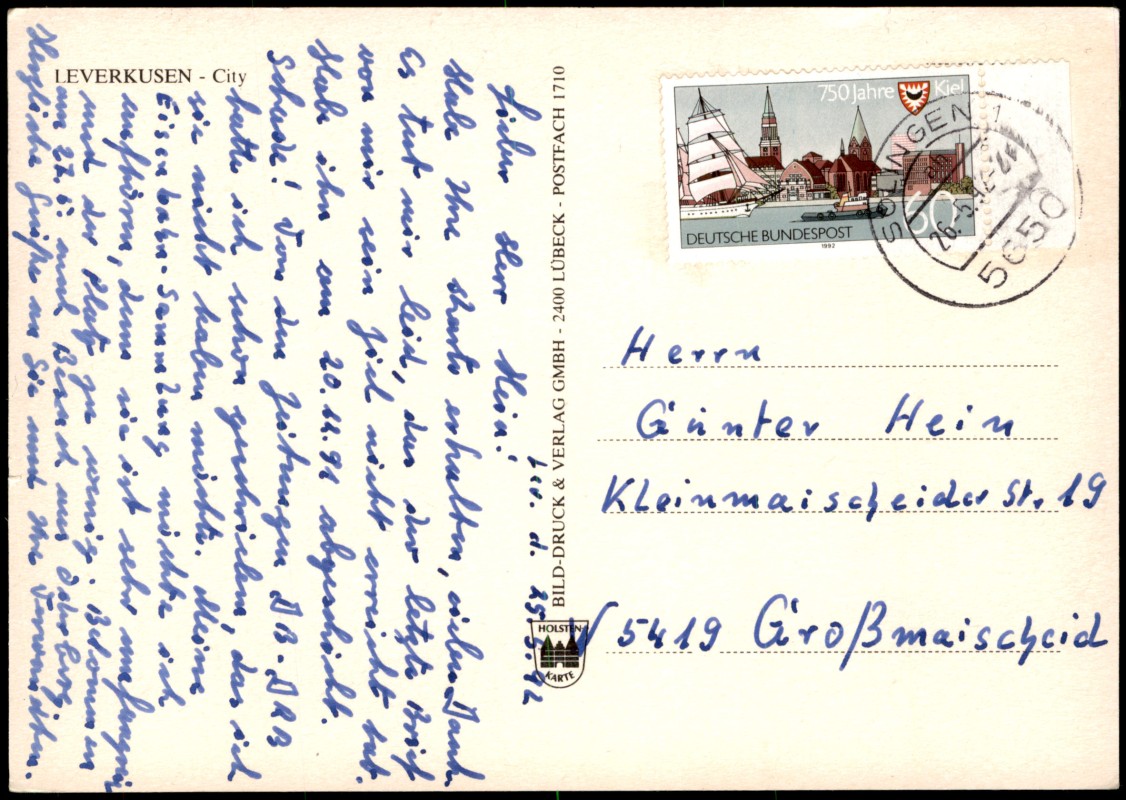 LEVERKUSEN - City
Lev. d. 25.5.92
Lieber Herr Hein!
Habe Ihre Karte erhalten, vielen Dank.
Es tut mir leid, das der letzte Brief
von mir sein Ziel nicht erreicht hat.
Habe ihn am 20.11.91 abgeschickt.
Schade! Von den Zeitungen DB-DRB
hatte ich schon geschrieben, das ich
sie nicht haben möchte. Meine
Eisenbahn-Sammlung möchte ich
auflösen, denn sie ist sehr
und der Platz zu wenig. Bekommen
am 27.6. Besuch aus
Herzliche Grüße an Sie und Ihre Verwandten.
BILD-DRUCK & VERLAG GMBH - 2400 LÜBECK - POSTFACH 1710
HOLSTEN
KARTE
750 Jahre Kiel
60
DEUTSCHE BUNDESPOST
1992
SOLINGEN 1
5650
Herrn
Günter Hein
Kleinmaischeider St. 19
W 5419 Großmaischeid